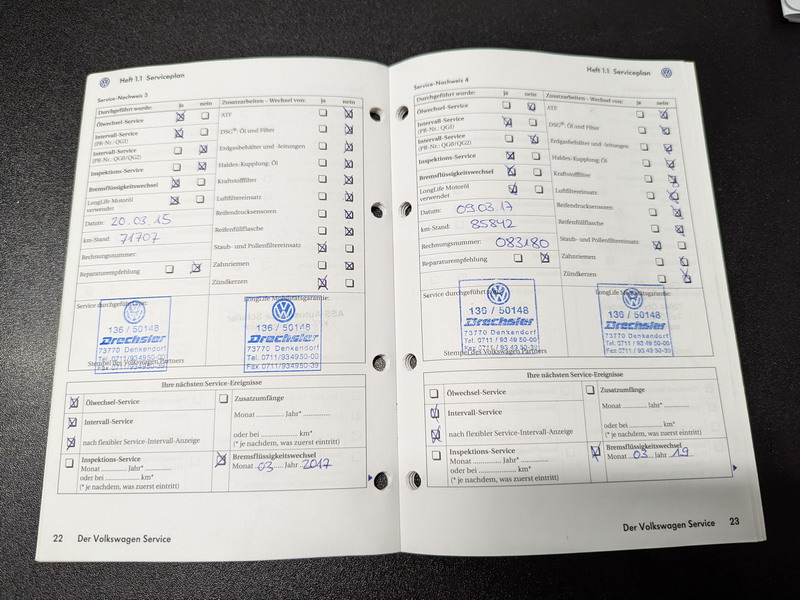 Heft 1.1 Serviceplan
Service-Nachweis 3
Durchgeführt wurde: ja nein
Ölwechsel-Service
Intervall-Service
(PR-Nr.: QG1)
Intervall-Service
(PR-Nr.: QG0/QG2)
Inspektions-Service
Bremsflüssigkeitswechsel
LongLife Motoröl
verwendet
Datum: 20.03.15
km-Stand: 71707
Rechnungsnummer:
Reparaturempfehlung
Zusatzarbeiten – Wechsel von: ja nein
ATF
DSG®: Öl und Filter
Erdgasbehälter und -leitungen
Haldex-Kupplung: Öl
Kraftstofffilter
Luftfiltereinsatz
Reifendrucksensoren
Reifenfüllflasche
Staub- und Pollenfiltereinsatz
Zahnriemen
Zündkerzen
Service durchgeführt durch:
LongLife Mobilitätsgarantie:
136 / 50148
Drechsler
73770 Denkendorf
Tel. 0711/934950-00
Fax 0711/934950-39
136 / 50148
Drechsler
73770 Denkendorf
Tel. 0711/934950-00
Fax 0711/934950-39
Stempel des Volkswagen Partners
Ihre nächsten Service-Ereignisse
Ölwechsel-Service
Intervall-Service
nach flexibler Service-Intervall-Anzeige
Inspektions-Service
Monat ........... Jahr* ...........
oder bei ........... km*
(* je nachdem, was zuerst eintritt)
Zusatzumfänge
Monat ........... Jahr* ...........
oder bei ........... km*
(* je nachdem, was zuerst eintritt)
Bremsflüssigkeitswechsel
Monat 03 Jahr 2017
22 Der Volkswagen Service
Heft 1.1 Serviceplan
Service-Nachweis 4
Durchgeführt wurde: ja nein
Ölwechsel-Service
Intervall-Service
(PR-Nr.: QG1)
Intervall-Service
(PR-Nr.: QG0/QG2)
Inspektions-Service
Bremsflüssigkeitswechsel
LongLife Motoröl
verwendet
Datum: 09.03.17
km-Stand: 85842
Rechnungsnummer: 083180
Reparaturempfehlung
Zusatzarbeiten – Wechsel von: ja nein
ATF
DSG®: Öl und Filter
Erdgasbehälter und -leitungen
Haldex-Kupplung: Öl
Kraftstofffilter
Luftfiltereinsatz
Reifendrucksensoren
Reifenfüllflasche
Staub- und Pollenfiltereinsatz
Zahnriemen
Zündkerzen
Service durchgeführt durch:
LongLife Mobilitätsgarantie:
136 / 50148
Drechsler
73770 Denkendorf
Tel. 0711 / 93 49 50-00
Fax 0711 / 93 49 50-39
136 / 50148
Drechsler
73770 Denkendorf
Tel. 0711 / 93 49 50-00
Fax 0711 / 93 49 50-39
Stempel des Volkswagen Partners
Ihre nächsten Service-Ereignisse
Ölwechsel-Service
Intervall-Service
nach flexibler Service-Intervall-Anzeige
Inspektions-Service
Monat ........... Jahr* ...........
oder bei ........... km*
(* je nachdem, was zuerst eintritt)
Zusatzumfänge
Monat ........... Jahr* ...........
oder bei ........... km*
(* je nachdem, was zuerst eintritt)
Bremsflüssigkeitswechsel
Monat 03 Jahr 19
Der Volkswagen Service 23